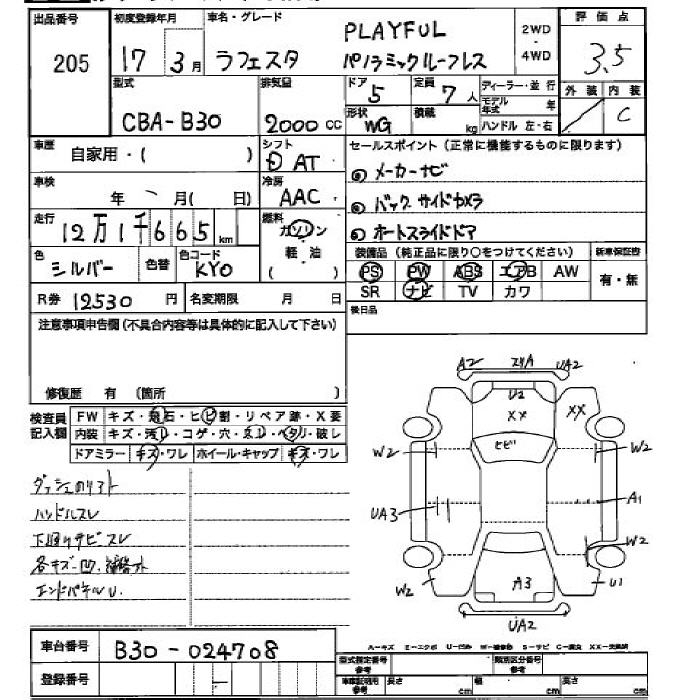 出品番号 初度登録年月 車名・グレード 評価点
205 17 3月 ラフェスタ PLAYFUL パノラミックルーフレス 2WD・4WD 3.5
型式 排気量 ドア 定員 ディーラー・並行 外装 内装
CBA-B30 2000cc 5 7人 モデル年式 年 C
形状 積載
WG kg ハンドル 左・右
車歴 シフト セールスポイント(正常に機能するものに限ります)
自家用・( ) AT
◎ メーカーナビ
車検 冷房
年 月( 日) AAC
◎ バックサイドカメラ
走行 燃料
12万1千665km ガソリン
◎ オートスライドドア
軽油
( )
色 色替 色コード 装備品(純正品に限り○をつけてください) 新車保証書
シルバー KY0 PS PW ABS エアB AW 有・無
R券 12530円 名変期限 月 日 SR ナビ TV カワ
注意事項申告欄(不具合内容等は具体的に記入して下さい) 後日品
修復歴 有 (箇所 )
検査員記入欄
FW キズ・飛石・ヒビ割・リペア跡・X要
内装 キズ・汚レ・コゲ・穴・スレ・ヘタリ・破レ
ドアミラー キズ・ワレ ホイール・キャップ キズ・ワレ
A2 スリA UA2
U2
XX XX
ヒビ
W2 W2
UA3 A1
W2
W2 A3 U1
UA2
ハンドルスレ
下廻りサビスレ
エンドパネルU.
車台番号 B30-024708
A-キズ E-エクボ U-凹み W-補修跡 S-サビ C-腐食 XX-交換済
登録番号 型式指定番号参考 類別区分番号参考
車庫証明用参考 長さ cm 幅 cm 高さ cm